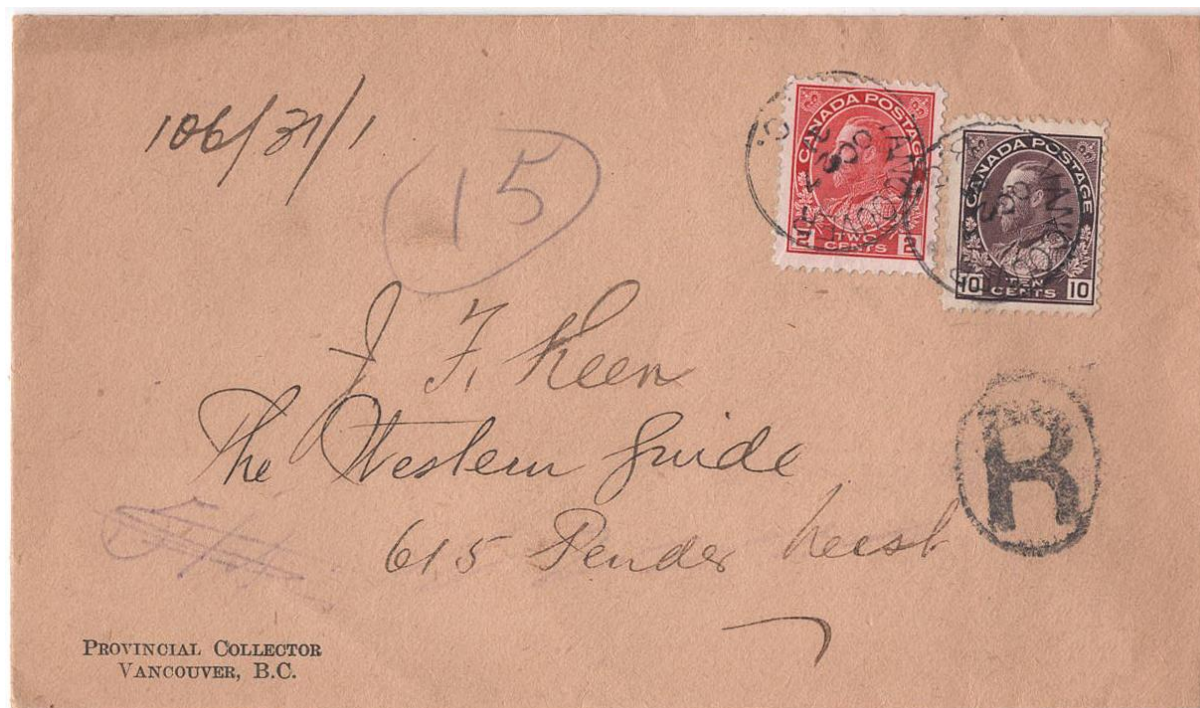 106/31/1
15
CANADA POSTAGE
2 TWO CENTS 2
CANADA POSTAGE
10 TEN CENTS 10
J. F. Keen
The Western Guide
615 Pender West
R
PROVINCIAL COLLECTOR
VANCOUVER, B.C.